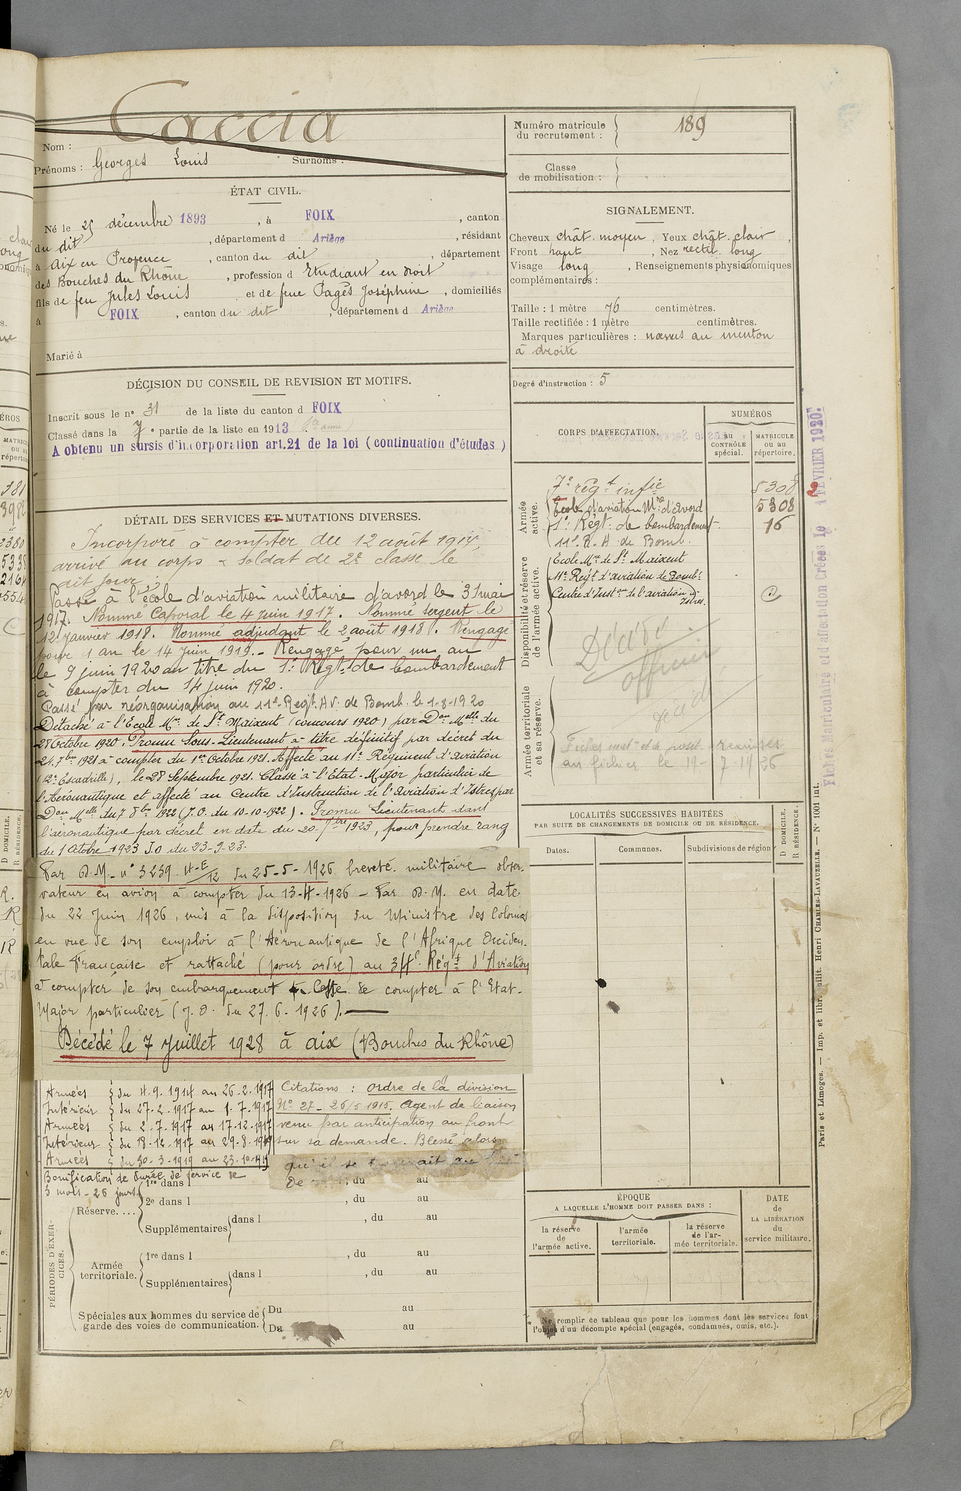 Caccia
Nom :
Prénoms : Georges Louis Surnoms :
Numéro matricule du recrutement : 189
Classe de mobilisation :
ÉTAT CIVIL.
Né le 25 décembre 1893, à FOIX, canton
du dit, département d Ariège, résidant
à Aix en Provence, canton du dit, département
des Bouches du Rhône, profession d Etudiant en droit
fils de feu Jules Louis et de feue Pagès Joséphine, domiciliés
à FOIX, canton du dit, département d Ariège
Marié à
SIGNALEMENT.
Cheveux chât. moyen, Yeux chât. clair,
Front haut, Nez rectil. long
Visage long, Renseignements physionomiques
complémentaires :
Taille : 1 mètre 76 centimètres.
Taille rectifiée : 1 mètre centimètres.
Marques particulières : nævus au menton
à droite
Degré d'instruction : 5
DÉCISION DU CONSEIL DE REVISION ET MOTIFS.
Inscrit sous le n° 31 de la liste du canton d FOIX
Classé dans la 7e partie de la liste en 1913
A obtenu un sursis d'incorporation art.21 de la loi (continuation d'études)
DÉTAIL DES SERVICES ET MUTATIONS DIVERSES.
Incorporé à compter du 12 août 1914
arrivé au corps & soldat de 2e classe le
dit jour.
Passé à l'école d'aviation militaire d'avord le 3 mai
1917. Nommé Caporal le 4 juin 1917. Nommé sergent le
12 janvier 1918. Nommé adjudant le 2 août 1918. Rengagé
pour 1 an le 14 juin 1919. Rengagé pour un an
le 9 juin 1920 au titre du 1er Régt de bombardement
à compter du 14 juin 1920.
Passé par réorganisation au 11e Régt AV. de Bomb. le 1-8-1920
Détaché à l'École Mre de St Maixent (concours 1920) par Don Mlle du
28 Octobre 1920. Promu Sous-Lieutenant à titre définitif par décret du
24 7bre 1921 à compter du 1er Octobre 1921. Affecté au 11e Régiment d'aviation
(12e Escadrille), le 28 Septembre 1921. Classé à l'Etat-Major particulier de
l'Aéronautique et affecté au Centre d'Instruction de l'aviation d'Istres par
Don Mlle du 7 8bre 1922 (J.O. du 10-10-1922). Promu Lieutenant dans
l'aéronautique par décret en date du 20 7bre 1923, pour prendre rang
du 1 Octobre 1923 J.O du 23-9-23.
Par D.M. n° 3239 4-E/12 du 25-5-1926 breveté militaire obser-
vateur en avion à compter du 13-4-1926 – Par D.M. en date
du 22 Juin 1926, mis à la disposition du Ministre des Colonies
en vue de son emploi à l'Aéronautique de l'Afrique Occiden-
tale Française et rattaché (pour ordre) au 34e Régt d'Aviation
à compter de son embarquement Cesse de compter à l'Etat-
Major particulier (J.O. du 27.6.1926).
Décédé le 7 juillet 1928 à Aix (Bouches du Rhône)
Armées du 4.9.1914 au 26.2.1917
Intérieur du 27.2.1917 au 1.7.1917
Armées du 2.7.1917 au 17.12.1917
Intérieur du 18.12.1917 au 29.3.1919
Armées du 30.3.1919 au 23.10.1919
Bonification de durée de service de
3 mois - 26 jours
Citations : Ordre de la division
N° 27 - 26/5 1915. Agent de liaison
venu par anticipation au front
sur sa demande. Blessé alors
qu'il se
CORPS D'AFFECTATION.
NUMÉROS
AU CONTRÔLE spécial.
MATRICULE ou au répertoire.
Armée active.
7e régt infie 5308
École d'aviation Mre d'avord 5308
1er Régt de bombardemt 16
11e R. A de Bomb.
Disponibilité et réserve de l'armée active.
École Mre de St Maixent
11e Régt d'aviation de Bombt
Centre d'Instion de l'aviation d'Istres
Décédé
officier
Armée territoriale et sa réserve.
au fichier le 19-7-1926
Fiches Matriculaire et d'affectation Créées le 1 FÉVRIER 1920
LOCALITÉS SUCCESSIVES HABITÉES
PAR SUITE DE CHANGEMENTS DE DOMICILE OU DE RÉSIDENCE.
Dates.
Communes.
Subdivisions de région
D DOMICILE.
R RÉSIDENCE.
PÉRIODES D'EXERCICES.
Réserve.... 1re dans l, du au
2e dans l, du au
Supplémentaires dans l, du au
Armée territoriale. 1re dans l, du au
Supplémentaires dans l, du au
Spéciales aux hommes du service de garde des voies de communication. Du au
Du au
ÉPOQUE
A LAQUELLE L'HOMME DOIT PASSER DANS :
la réserve de l'armée active.
l'armée territoriale.
la réserve de l'armée territoriale.
DATE de LA LIBÉRATION du service militaire.
Ne remplir ce tableau que pour les hommes dont les services font
l'objet d'un décompte spécial (engagés, condamnés, omis, etc.).
Paris et Limoges. — Imp. et libr. milit. Henri CHARLES-LAVAUZELLE. — N° 1001 int.